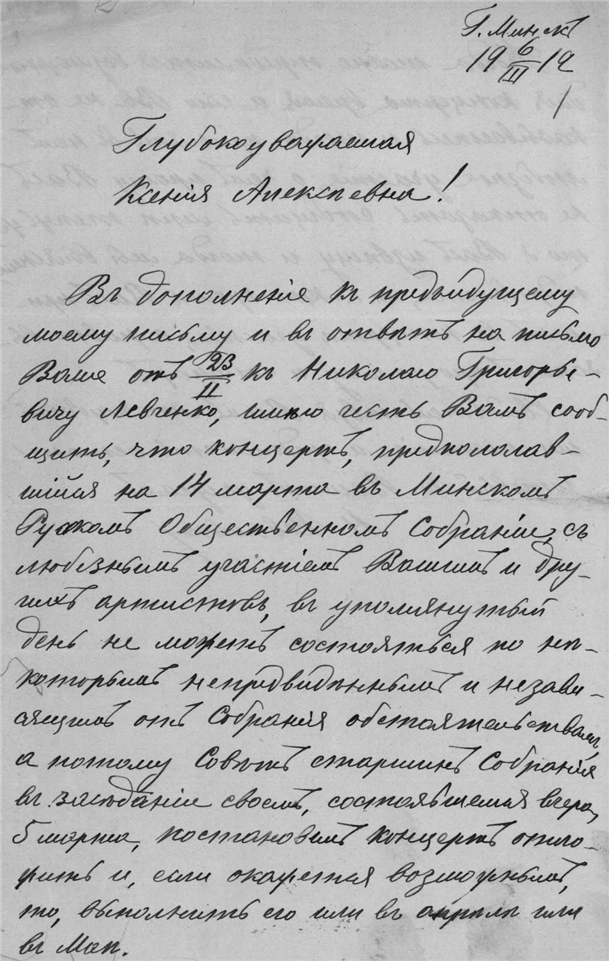 Г. Минскъ
19 6/III 12
Глубокоуважаемая
Ксенія Алексѣевна!
Въ дополненіе къ предъидущему
моему письму и въ отвѣтъ на письмо
Ваше отъ 23/II къ Николаю Григорье-
вичу Левченко, имѣю честь Вамъ сооб-
щить, что концертъ, предполагав-
шійся на 14 марта въ Минскомъ
Русскомъ Общественномъ Собраніи, съ
любезнымъ участіемъ Вашимъ и дру-
гихъ артистовъ, въ упомянутый
день не можетъ состояться по нѣ-
которымъ непредвидѣннымъ и незави-
сящимъ отъ Собранія обстоятельствамъ,
а потому Совѣтъ старшинъ Собранія
въ засѣданіи своемъ, состоявшемся вчера,
5 марта, постановилъ концертъ отло-
жить и, если окажется возможнымъ,
то, выполнить его или въ апрѣлѣ или
въ Маѣ.